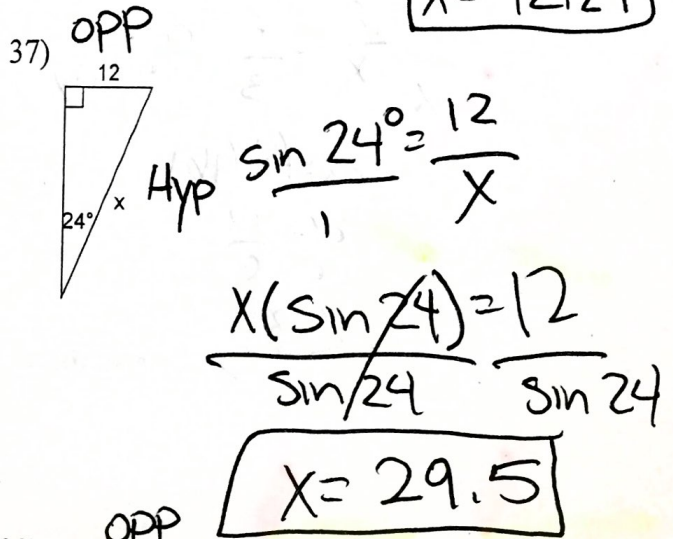 37) OPP
12
24° x Hyp
sin 24° = 12
1 x
x(sin 24) = 12
sin 24 sin 24
x = 29.5
OPP